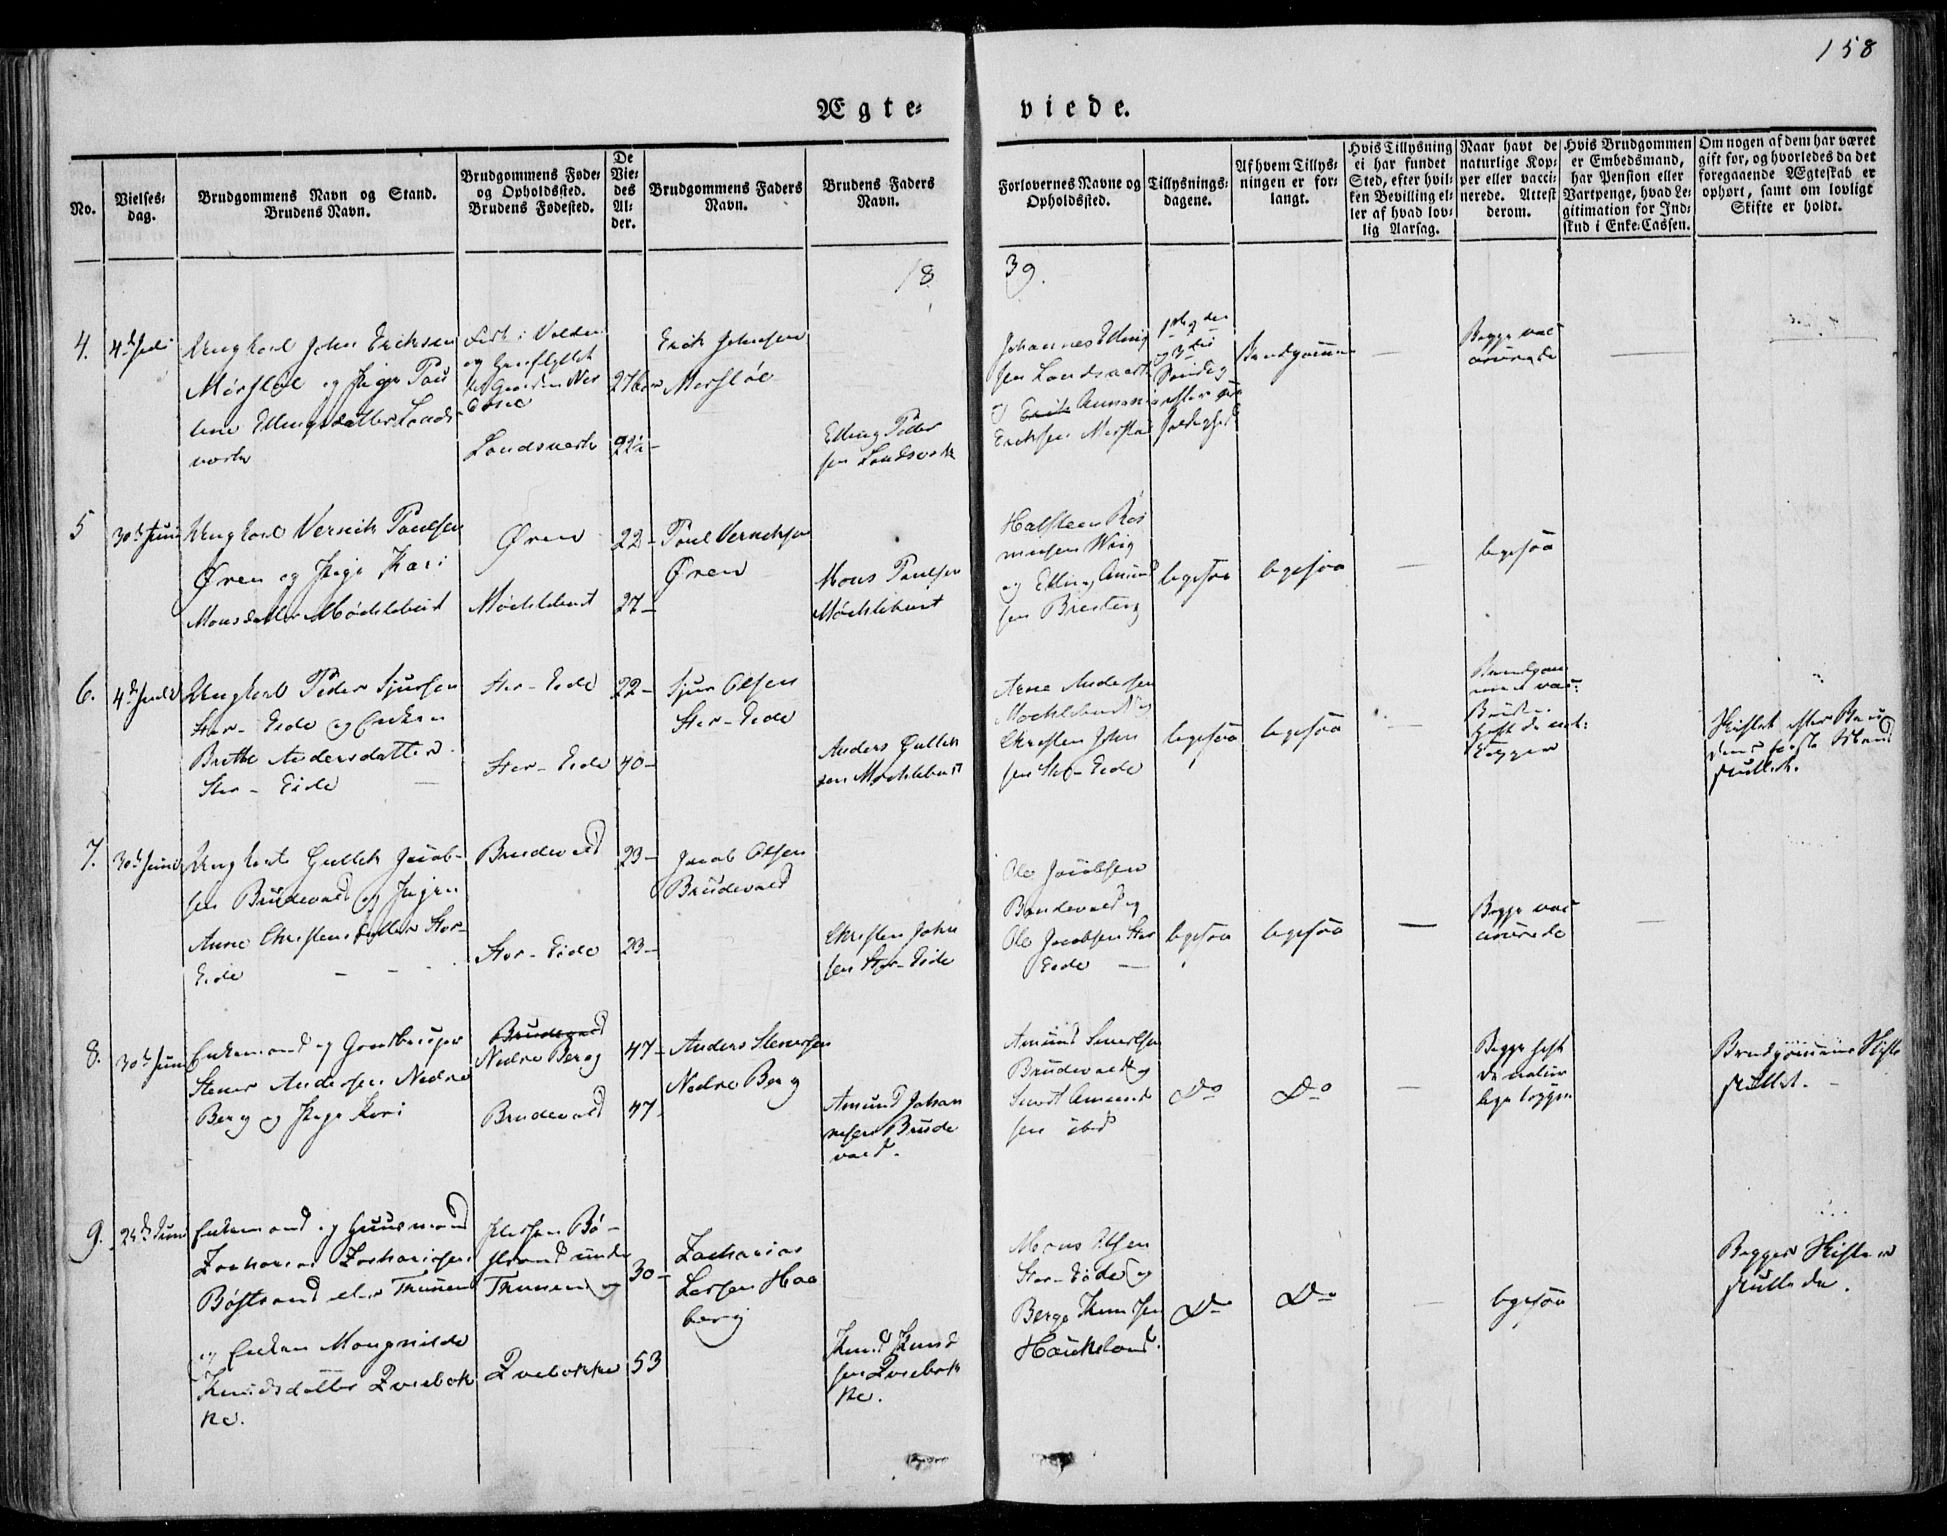 158
Ægte-
viede.
No.
Vielses-
dag.
Brudgommens Navn og Stand.
Brudens Navn.
Brudgommens Føde-
og Opholdssted.
Brudens Fødested.
De
Vie-
des
Al-
der.
Brudgommens Faders
Navn.
Brudens Faders
Navn.
Forlovernes Navne og
Opholdssted.
Tillysnings-
dagene.
Af hvem Tillys-
ningen er for-
langt.
Hvis Tillysning
ei har fundet
Sted, efter hvil-
ken Bevilling el-
ler af hvad lov-
lig Aarsag.
Naar havt de
naturlige Kop-
per eller vacci-
nerede. Attest
derom.
Hvis Brudgommen
er Embedsmand,
har Pension eller
Vartpenge, hvad Le-
gitimation for Ind-
skud i Enke-Cassen.
Om nogen af dem har været
gift før, og hvorledes da det
foregaaende Ægteskab er
ophørt, samt om lovligt
Skifte er holdt.
18
39.
4.
4de
Ungkarl John Eriksen
og Pige Pau
line Ellingsdatter Lands
Landsverk
27
22½
Erik Johnsen
Elling Peder
sen Landsverk
Johannes Elling
sen Landsverk
og Erik
Ericksen
Brudgommen
—
Begge vac
cinerede
5
30te Juni
Ungkarl Vernik Paulsen
Øren og Pige Kari
Monsdatter Møcklebust
Øren
Møcklebust
22-
27-
Paul Verniksen
Øren
Mons Paulsen
Møcklebust
og Elling Amund
sen
ligesaa
ligesaa
—
ligesaa
6.
4de
Ungkarl Peder Sjursen
Stor-Eide og Enken
Brethe Andersdatter
Stor-Eide
Stor-Eide
Stor-Eide
22-
40-
Sjur Olsen
Stor-Eide
Anders Gullik
sen Møcklebust
Arne Andersen
Møcklebust og
Christen John
sen Stor-Eide
ligesaa
ligesaa
—
Brudgom
men vac:
Bruden
havt de nat:
Kopper
Skiftet efter Bru
dens første Mand
sluttet.
7.
30te Juni
Ungkarl Gullik Jacob-
sen Brudevold og Pigen
Anne Christensdatter Stor-
Eide
Brudevold
Stor-Eide
23-
23-
Jacob Olsen
Brudevold
Christen John
sen Stor-Eide
Ole Jacobsen
Brudevold og
Ole Jacobsen Stor
Eide
ligesaa
ligesaa
—
Begge vac
cinerede
—
8.
30te Juni
Enkemand og Gaardbruger
Stener Andersen Nedre
Berg og Pige Kari
Brudevold
Nedre Berg
Brudevold
47-
47-
Anders Stenersen
Nedre Berg
Amund Johan
nesen Brude
vold.
Amund Severtsen
Brudevold og
Sivert Amund
sen ibid
Do
Do
—
Begge havt
de natur
lige Kopper
Brudgommens Skifte
sluttet.
9.
24de Juni
Enkemand og Huusmand
Zacharias Zachariasen
Bøstrand eller Thunem
og Enken Mangnilde
Knudsdatter Qvebok
ke.
Pladsen Bø-
strand under
Thunem og
Qvebokke
30-
53
Zacharias
Larsen Haa
berg
Knud Knud
sen Qvebok
ke.
Mons Olsen
Stor-Eide og
Berge Knudsen
Houkeland.
Do
Do
ligesaa
Begges Skifter
sluttede.